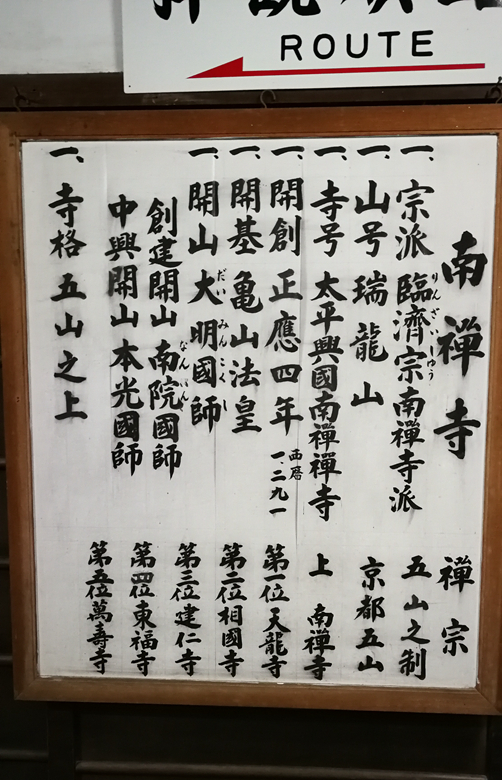 ROUTE
南禅寺
一、宗派 臨濟宗南禅寺派
りんざいしゅう
一、山号 瑞龍山
一、寺号 太平興國南禅禅寺
一、開創 正應四年 西暦 一、二九一
一、開基 亀山法皇
一、開山 大明國師
だいみんこくし
創建開山 南院國師
なんいん
中興開山 本光國師
一、寺格 五山之上
禅宗
五山之制
京都五山
上 南禅寺
第一位 天龍寺
第二位 相國寺
第三位 建仁寺
第四位 東福寺
第五位 萬壽寺